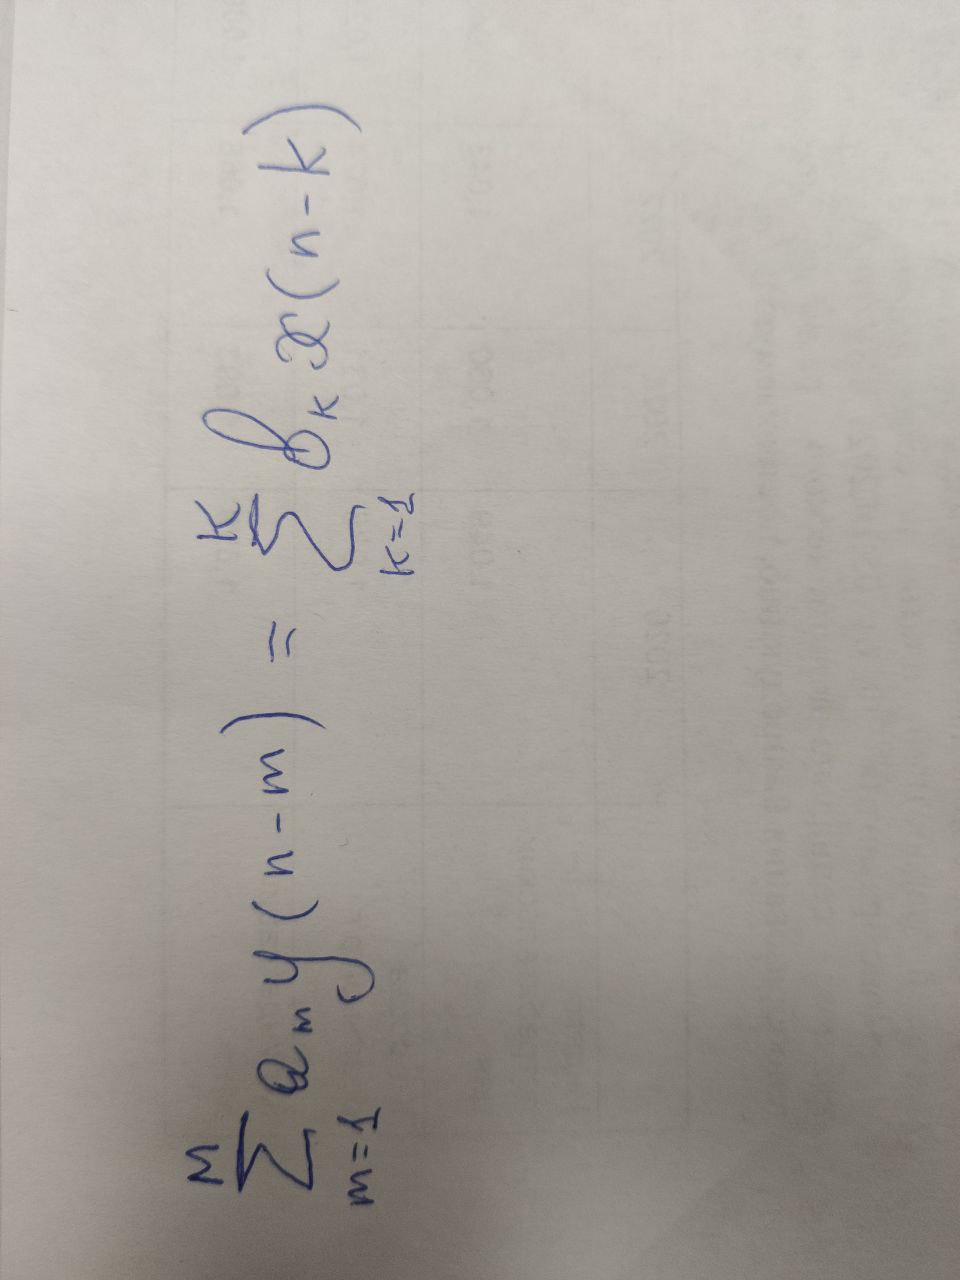 \sum_{m=1}^{M} a_m y(n-m) = \sum_{k=1}^{K} b_k x(n-k)